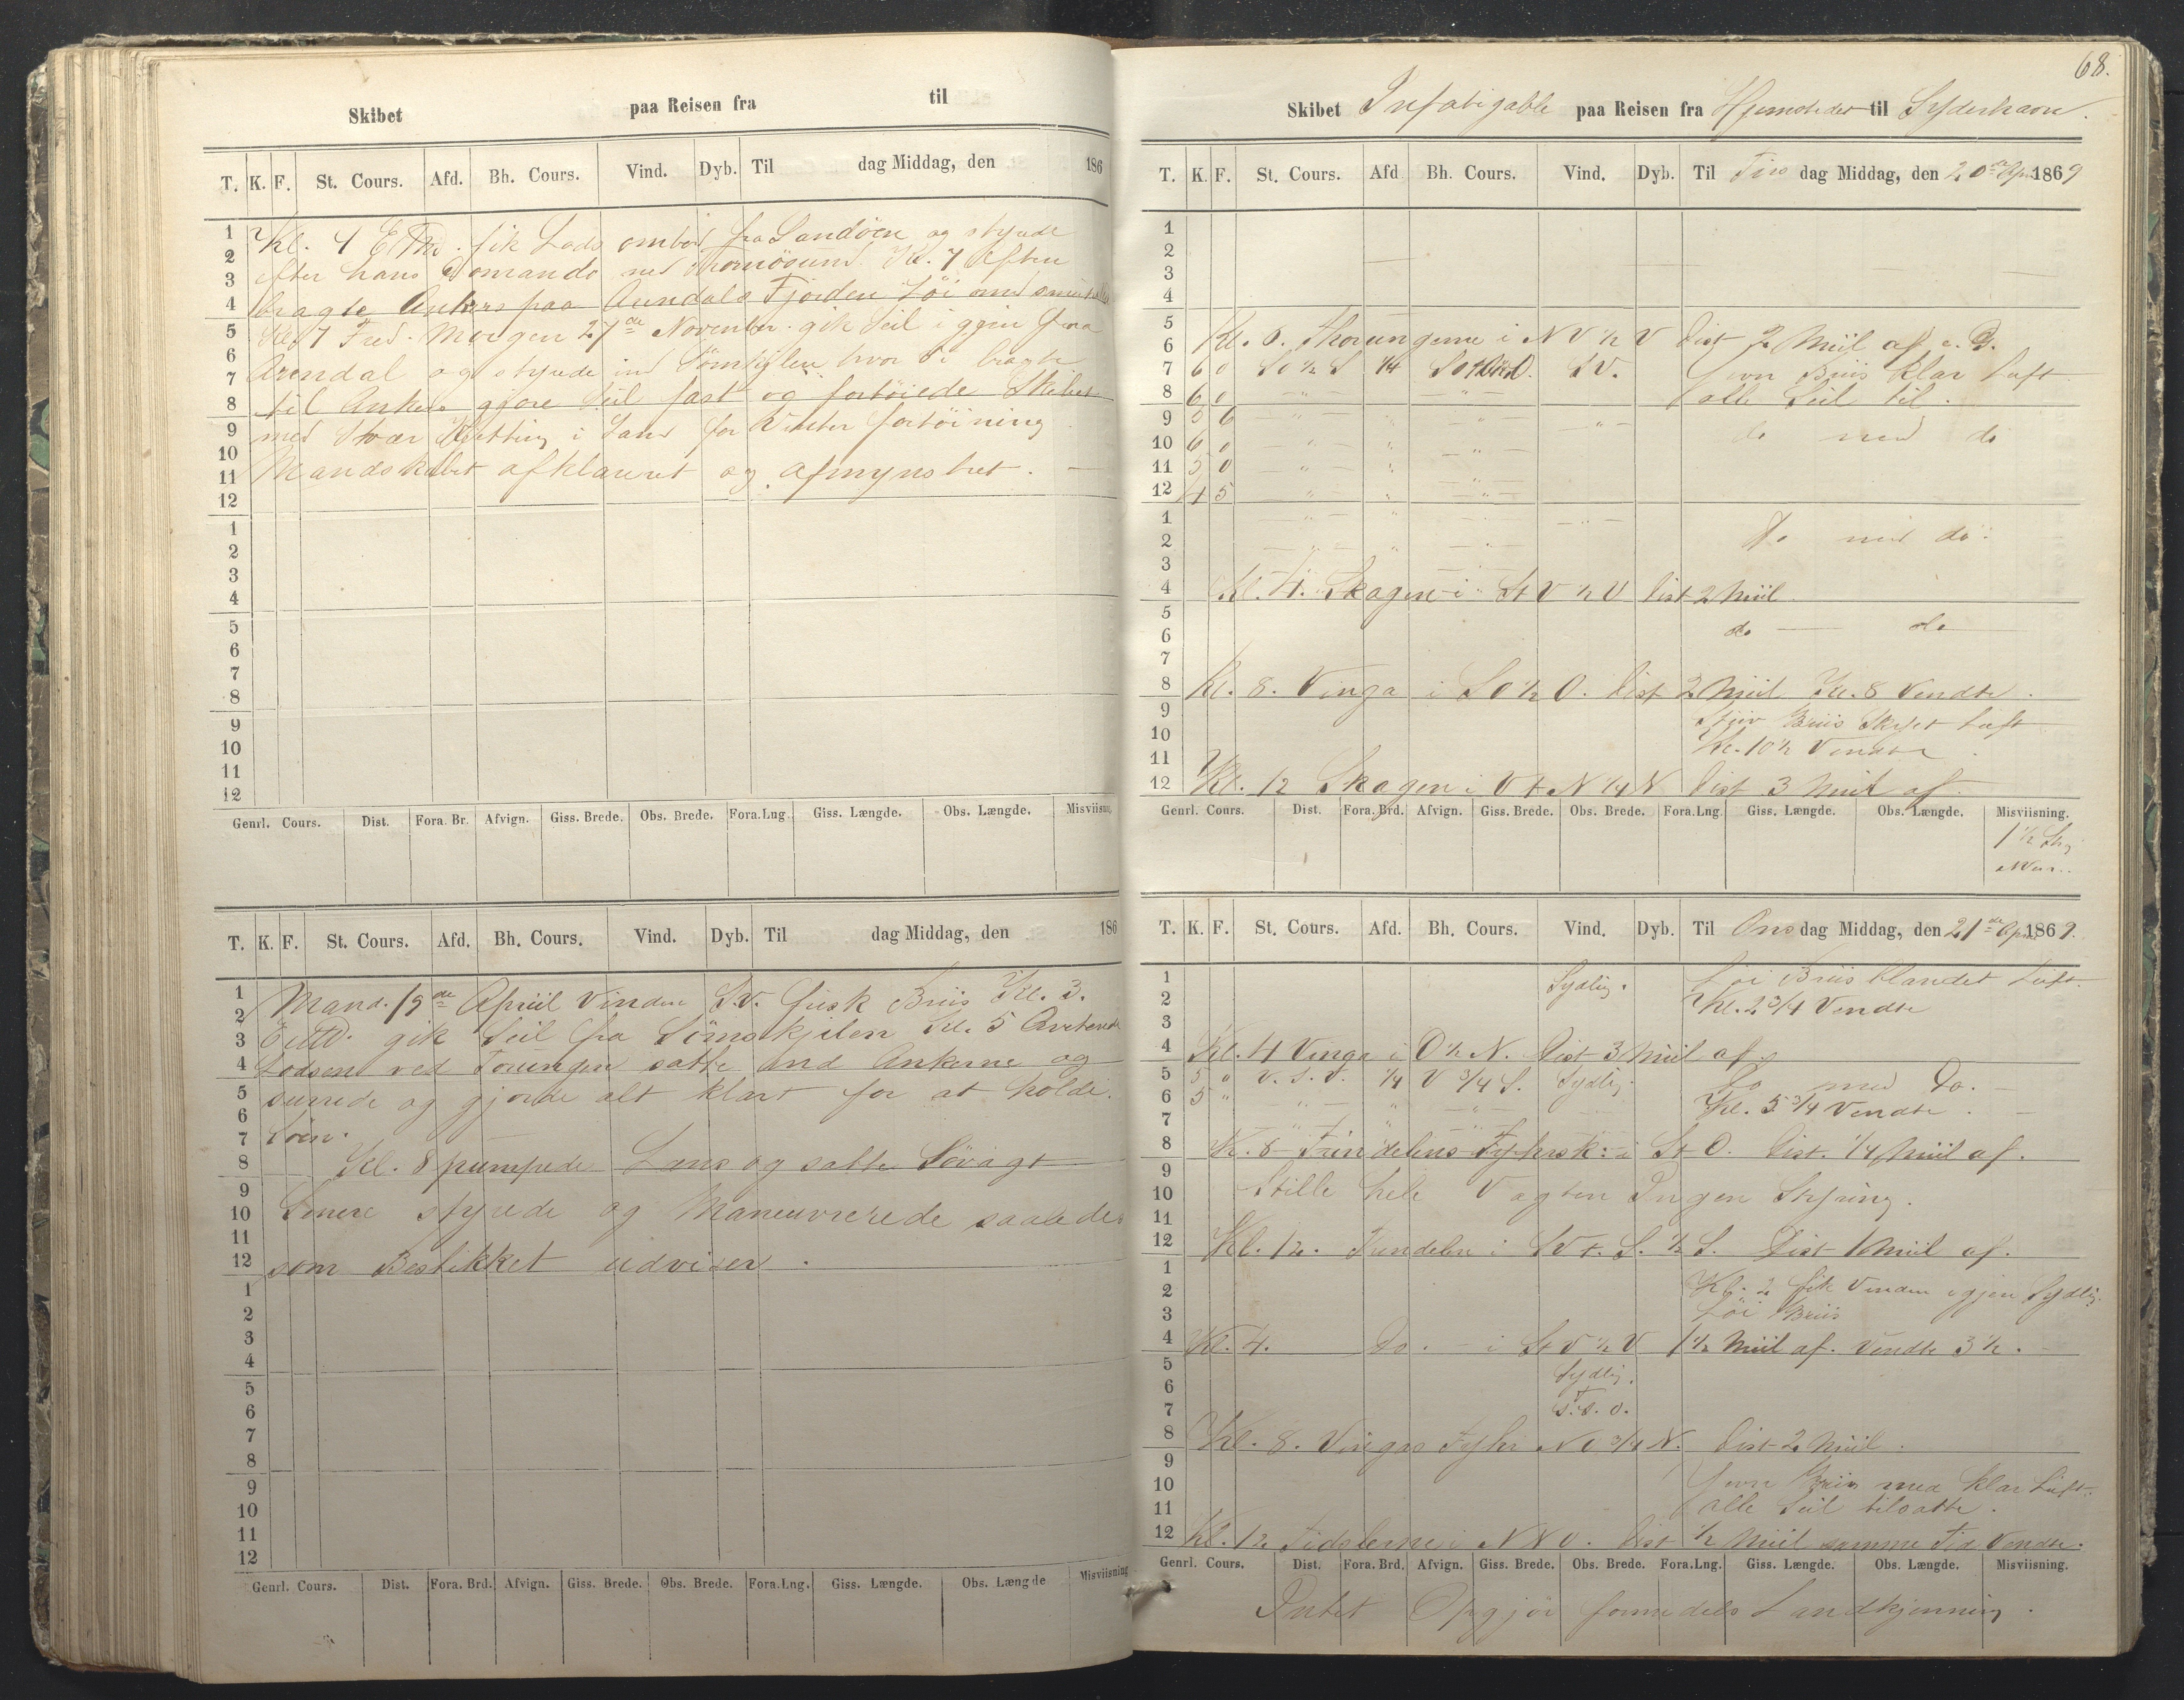 Skibet paa Reisen fra til
T. K. F. St. Cours. Afd. Bh. Cours. Vind. Dyb. Til dag Middag, den 186
1 Kl. 4 E Md. fik Lods ombord fra Sandöen og styrede
2 efter hans Comando ned Tromösund Kl. 7 Aften
3
4 bragte Ankers paa Arendals Fjorden Löi med
5 Kl. 7 Fred. Morgen 27de November gik Seil iggjen fra
6
7 Arendal og styrede ind Sömskjlen hvor vi bragte
8 til Ankers gjore Seil fast og fortöiede Skibet
9 med svær Kjetting i Land for Vinter fortöining
10 Mandskabet afklareret og afmynstret. —
11
12
1
2
3
4
5
6
7
8
9
10
11
12
Genrl. Cours. Dist. Fora. Br. Afvign. Giss. Brede. Obs. Brede. Fora.Lng. Giss. Længde. Obs. Længde. Misviisn.
T. K. F. St. Cours. Afd. Bh. Cours. Vind. Dyb. Til dag Middag, den 186
1 Mand. 19de Apriil Vinden S.V. frisk Briis Kl. 3.
2
3 E Md. gik Seil fra Sömskjilen Kl. 5
4 Lodsen ved Torungen satte ind Ankerne og
5 surrede og gjorde alt klart for at holde
6
7 Söen.
8 Kl. 8 pumpede Læns og satte Sövagt
9
10 Senere styrede og Maneuvrerede saaledes
11
12 som Bestikket udviser.
1
2
3
4
5
6
7
8
9
10
11
12
Genrl. Cours. Dist. Fora. Brd. Afvign. Giss. Brede. Obs. Brede. Fora.Lng. Giss. Længde. Obs. Længde Misviisning
68.
Skibet Infatigable paa Reisen fra Hjemstedet til Syderhavn.
T. K. F. St. Cours. Afd Bh. Cours. Vind. Dyb. Til Tirs dag Middag, den 20de Apr 1869
1
2
3
4
5
6 Kl. 6. Thorungerne i NV ½ V Dist 2 Miil af
7 6 0 SO ½ S ¼ SV. Jevn Briis klar Luft
8 6 0 alle Seil til.
9 5 6 do med do
10 6 0
11 5 0
12 4 5
1 Do med do.
2
3
4 Kl. 4. Skagen i StV ½ V Dist 2 Miil
5
6 do — do
7
8 Kl. 8. Vinga i SO ½ O. Dist 2 Miil Kl. 8 Vendte.
9 Stiiv Briis Skyet Luft
10 Kl. 10 ½ Vendte
11
12 Kl. 12 Skagen i VtN ¼ N Dist 3 Miil af
Genrl. Cours. Dist. Fora. Brd. Afvign. Giss. Brede. Obs. Brede. Fora.Lng. Giss. Længde. Obs. Længde. Misviisning.
1 ½ Str
NV
T. K. F. St. Cours. Afd. Bh. Cours. Vind. Dyb. Til Ons dag Middag, den 21de Apr 1869.
1 Sydlig. Löi Briis blandet Luft.
2 Kl. 2 ¾ Vendte
3
4 Kl. 4 Vinga i O ½ N. Dist 3 Miil af
5 5 " V.S.V. ¼ V ¾ S. Sydlig. Do med Do.
6 5 " Kl. 5 ¾ Vendte.
7
8 Kl. 8 Trindelens Fyhrsk: i StO. Dist. ¼ Miil af.
9
10 Stille hele Vagten Ingen Styring.
11
12 Kl. 12. Trindelen i SVt.S. ½ S. Dist 1 Miil af.
1
2 Kl. 2 fik Vinden igjen Sydlig.
3 Löi Briis
4 Kl. 4. Do. i StV ½ V 1 ½ Miil af. Vendte 3 ½.
5 Sydlig.
6
7 S.S.O.
8 Kl. 8. Vingas Fyhr NO ¾ N. Dist 2 Miil.
9
10 Jevn Briis med klar Luft.
11 alle Seil tilsatte.
12 Kl. 12 Tidslerne i NNO. Dist ½ Miil samme Tid Vendte.
Genrl. Cours. Dist. Fora. Brd. Afvign. Giss. Brede. Obs. Brede. Fora.Lng. Giss. Længde. Obs. Længde. Misviisning.
Intet Opgjör formedels Landkjenning.